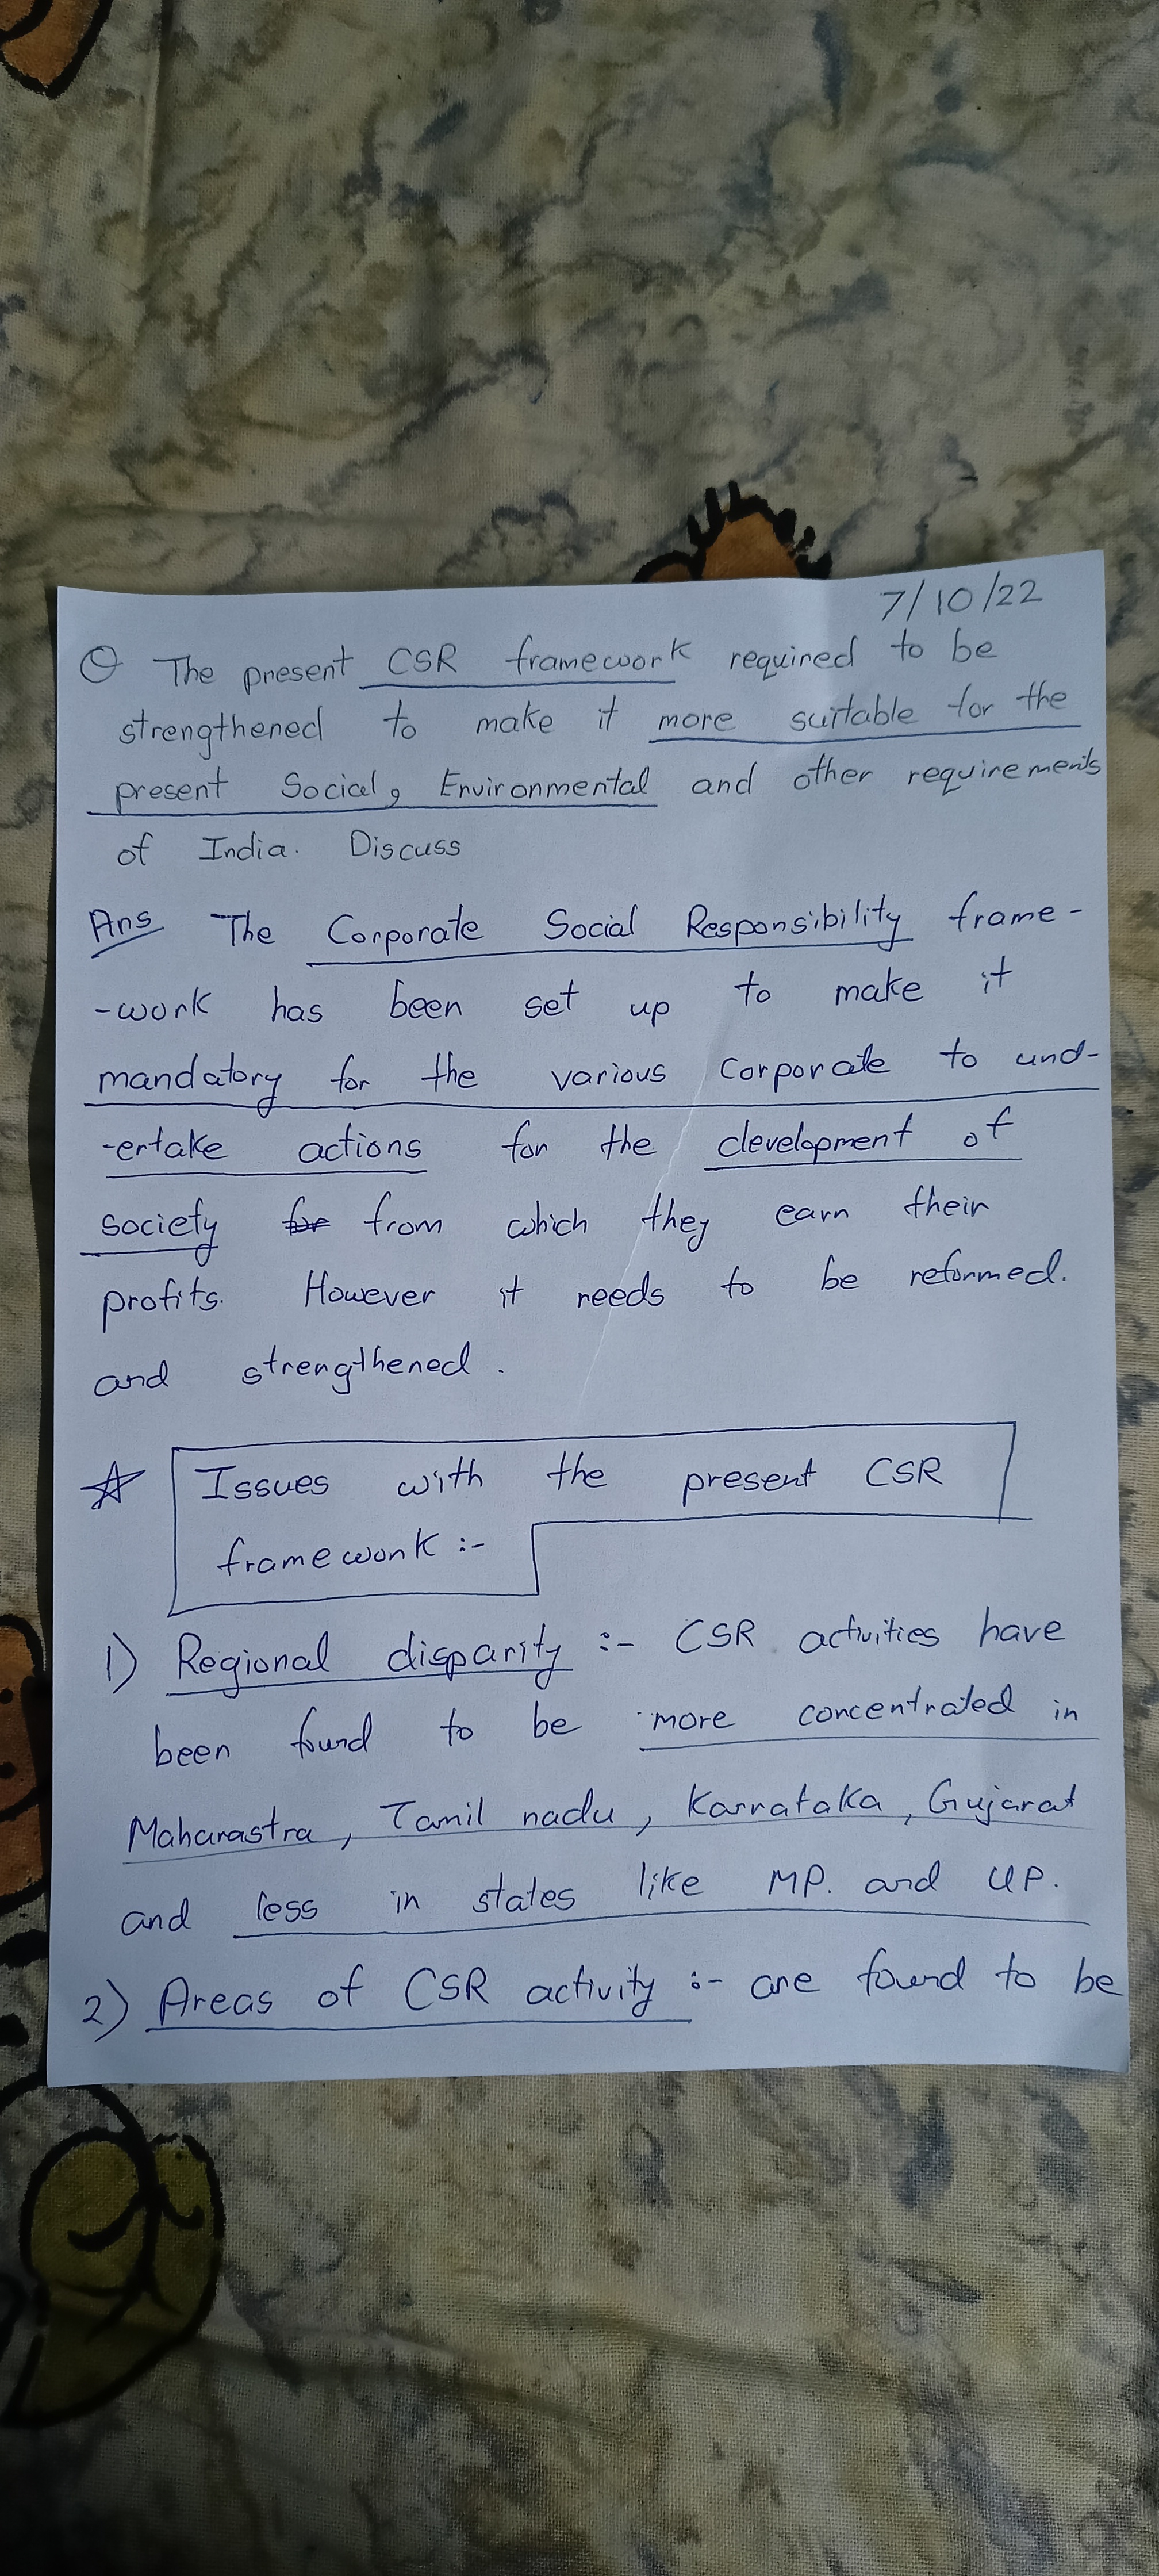 7/10/22
Q The present CSR framework required to be
strengthened to make it more suitable for the
present Social, Environmental and other requirements
of India. Discuss
Ans The Corporate Social Responsibility frame-
-work has been set up to make it
mandatory for the various corporate to und-
-ertake actions for the development of
society for from which they earn their
profits. However it needs to be reformed.
and strengthened.
Issues with the present CSR
framework :-
1) Regional disparity :- CSR activities have
been found to be more concentrated in
Maharastra, Tamil nadu, Karnataka, Gujarat
and less in states like MP. and UP.
2) Areas of CSR activity :- are found to be